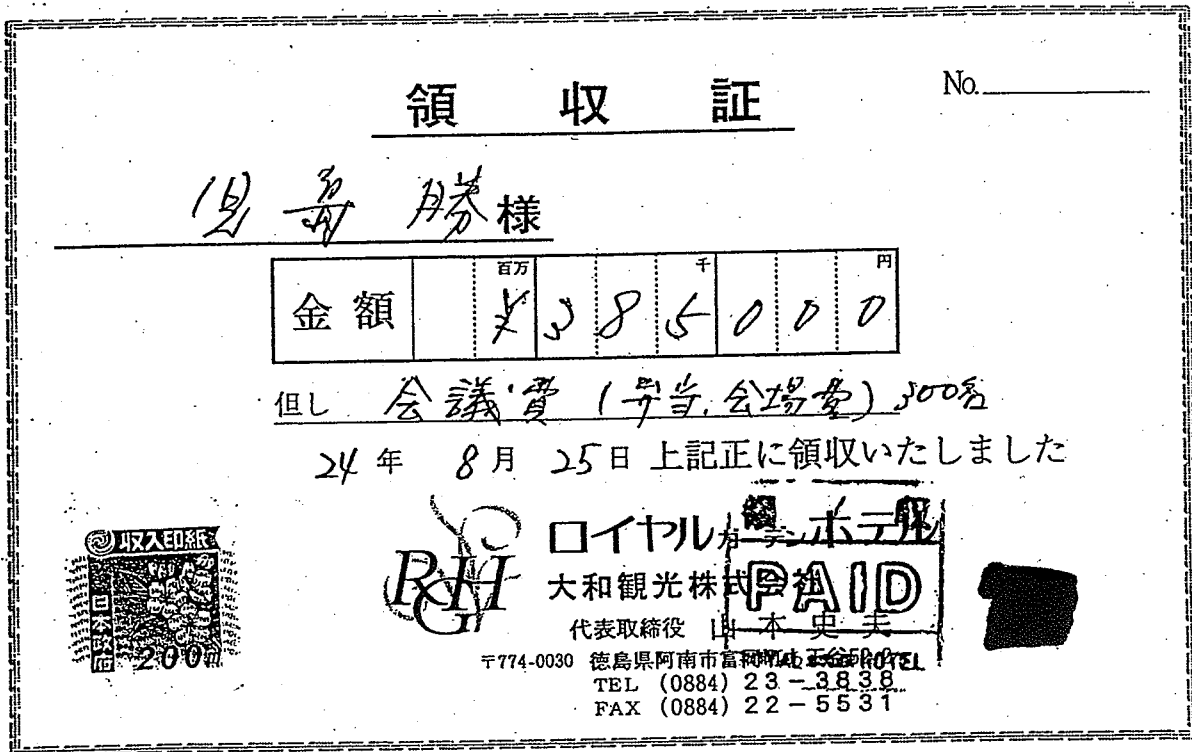 領収証
No.
児島 勝様
金額 百万 千 円
¥385000
但し 会議費 (弁当.会場費) 300名
24年 8月 25日 上記正に領収いたしました
収入印紙
日本政府
200円
RGH
ロイヤルガーデンホテル
大和観光株式会社
PAID
代表取締役 山本史夫
〒774-0030 徳島県阿南市富岡町
HOTEL
TEL (0884) 23-3838
FAX (0884) 22-5531